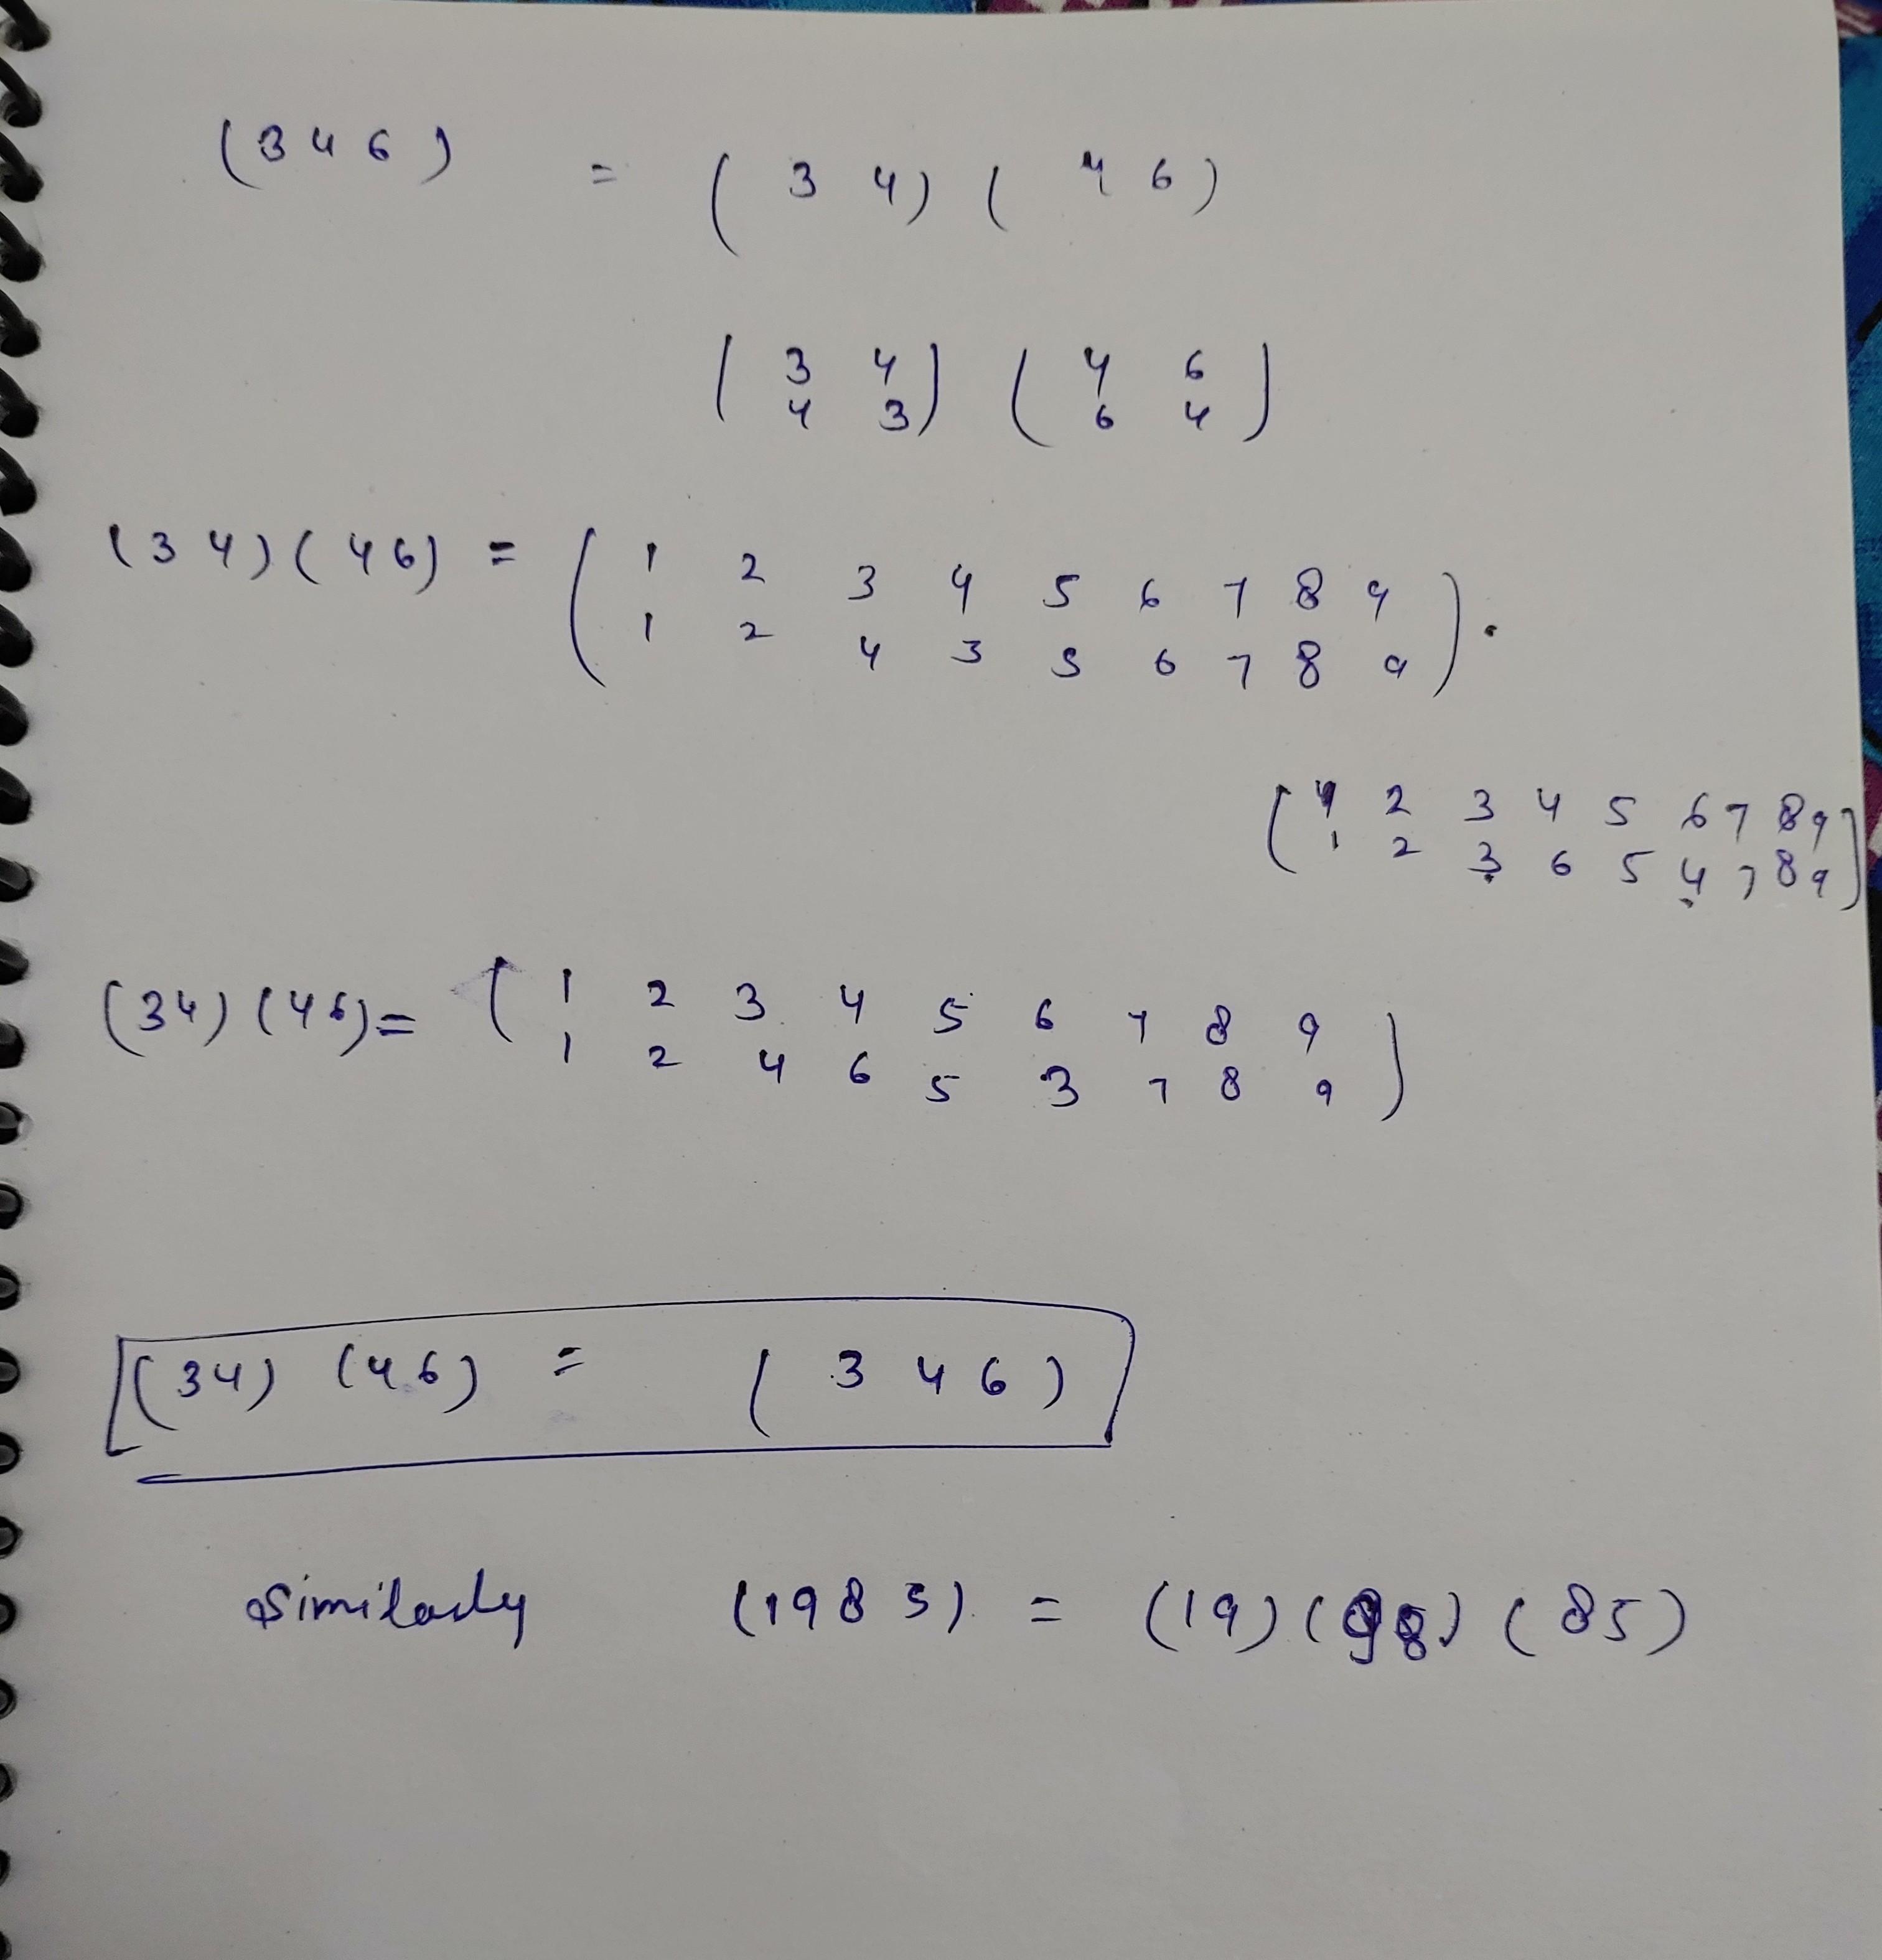 (3 4 6) = (3 4) (4 6)
(3 4) (4 6)
4 3 6 4
(3 4) (4 6) = (1 2 3 4 5 6 7 8 9) .
1 2 4 3 5 6 7 8 9
(1 2 3 4 5 6 7 8 9)
1 2 3 6 5 4 7 8 9
(34) (46) = (1 2 3 4 5 6 7 8 9)
1 2 4 6 5 3 7 8 9
(34) (46) = (3 4 6)
Similarly (1985) = (19) (98) (85)